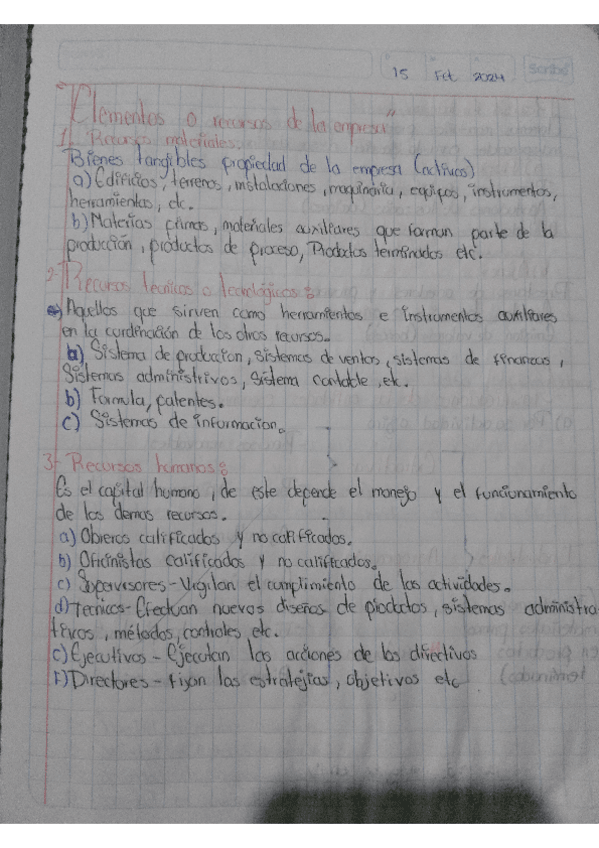 15 Feb 2024 Scribe
"Elementos o recursos de la empresa"
1.- Recursos materiales.
Bienes tangibles propiedad de la empresa (activos)
a) Edificios, terrenos, instalaciones, maquinaria, equipos, instrumentos,
herramientas, etc.
b) Materias primas, materiales auxiliares que forman parte de la
producción, productos de proceso, Productos terminados etc.
2- Recursos técnicos o tecnológicos:
Aquellos que sirven como herramientas e instrumentos auxiliares
en la cordinación de los otros recursos.
a) Sistema de produccion, sistemas de ventas, sistemas de finanzas,
Sistemas administrivos, Sistema contable, etc.
b) Formula, patentes.
c) Sistemas de informacion.
3- Recursos humanos:
Es el capital humano, de este depende el manejo y el funcionamiento
de los demas recursos.
a) Obreros calificados y no calificados.
b) Oficinistas calificados y no calificados.
c) Supervisores - Vigilan el cumplimiento de las actividades.
d) Tecnicos - Efectuan nuevos diseños de productos, sistemas administra
tivos, métodos, controles, etc.
c) Ejecutivos - Ejecutan las acciones de los directivos
F) Directores - Fijan las estratejias, objetivos etc